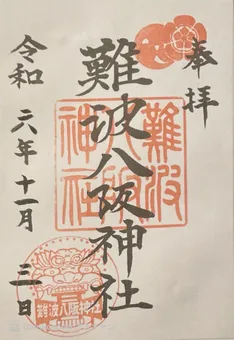 奉拝
難波八阪神社
難波八阪神社
令和六年十一月三日
難波八阪神社